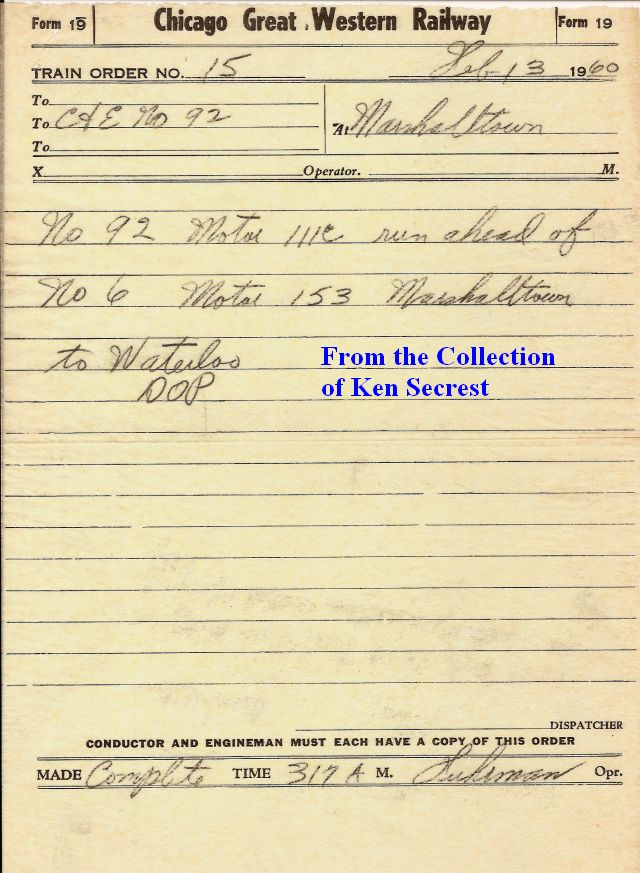 Form 19 Chicago Great Western Railway Form 19
TRAIN ORDER NO. 15 Feb 13 1960
To
To C&E No 92 At Marshalltown
To
X Operator. M.
No 92 Motor 111C run ahead of
No 6 Motor 153 Marshalltown
to Waterloo
DOP
From the Collection
of Ken Secrest
DISPATCHER
CONDUCTOR AND ENGINEMAN MUST EACH HAVE A COPY OF THIS ORDER
MADE Complete TIME 317 A M. Opr.